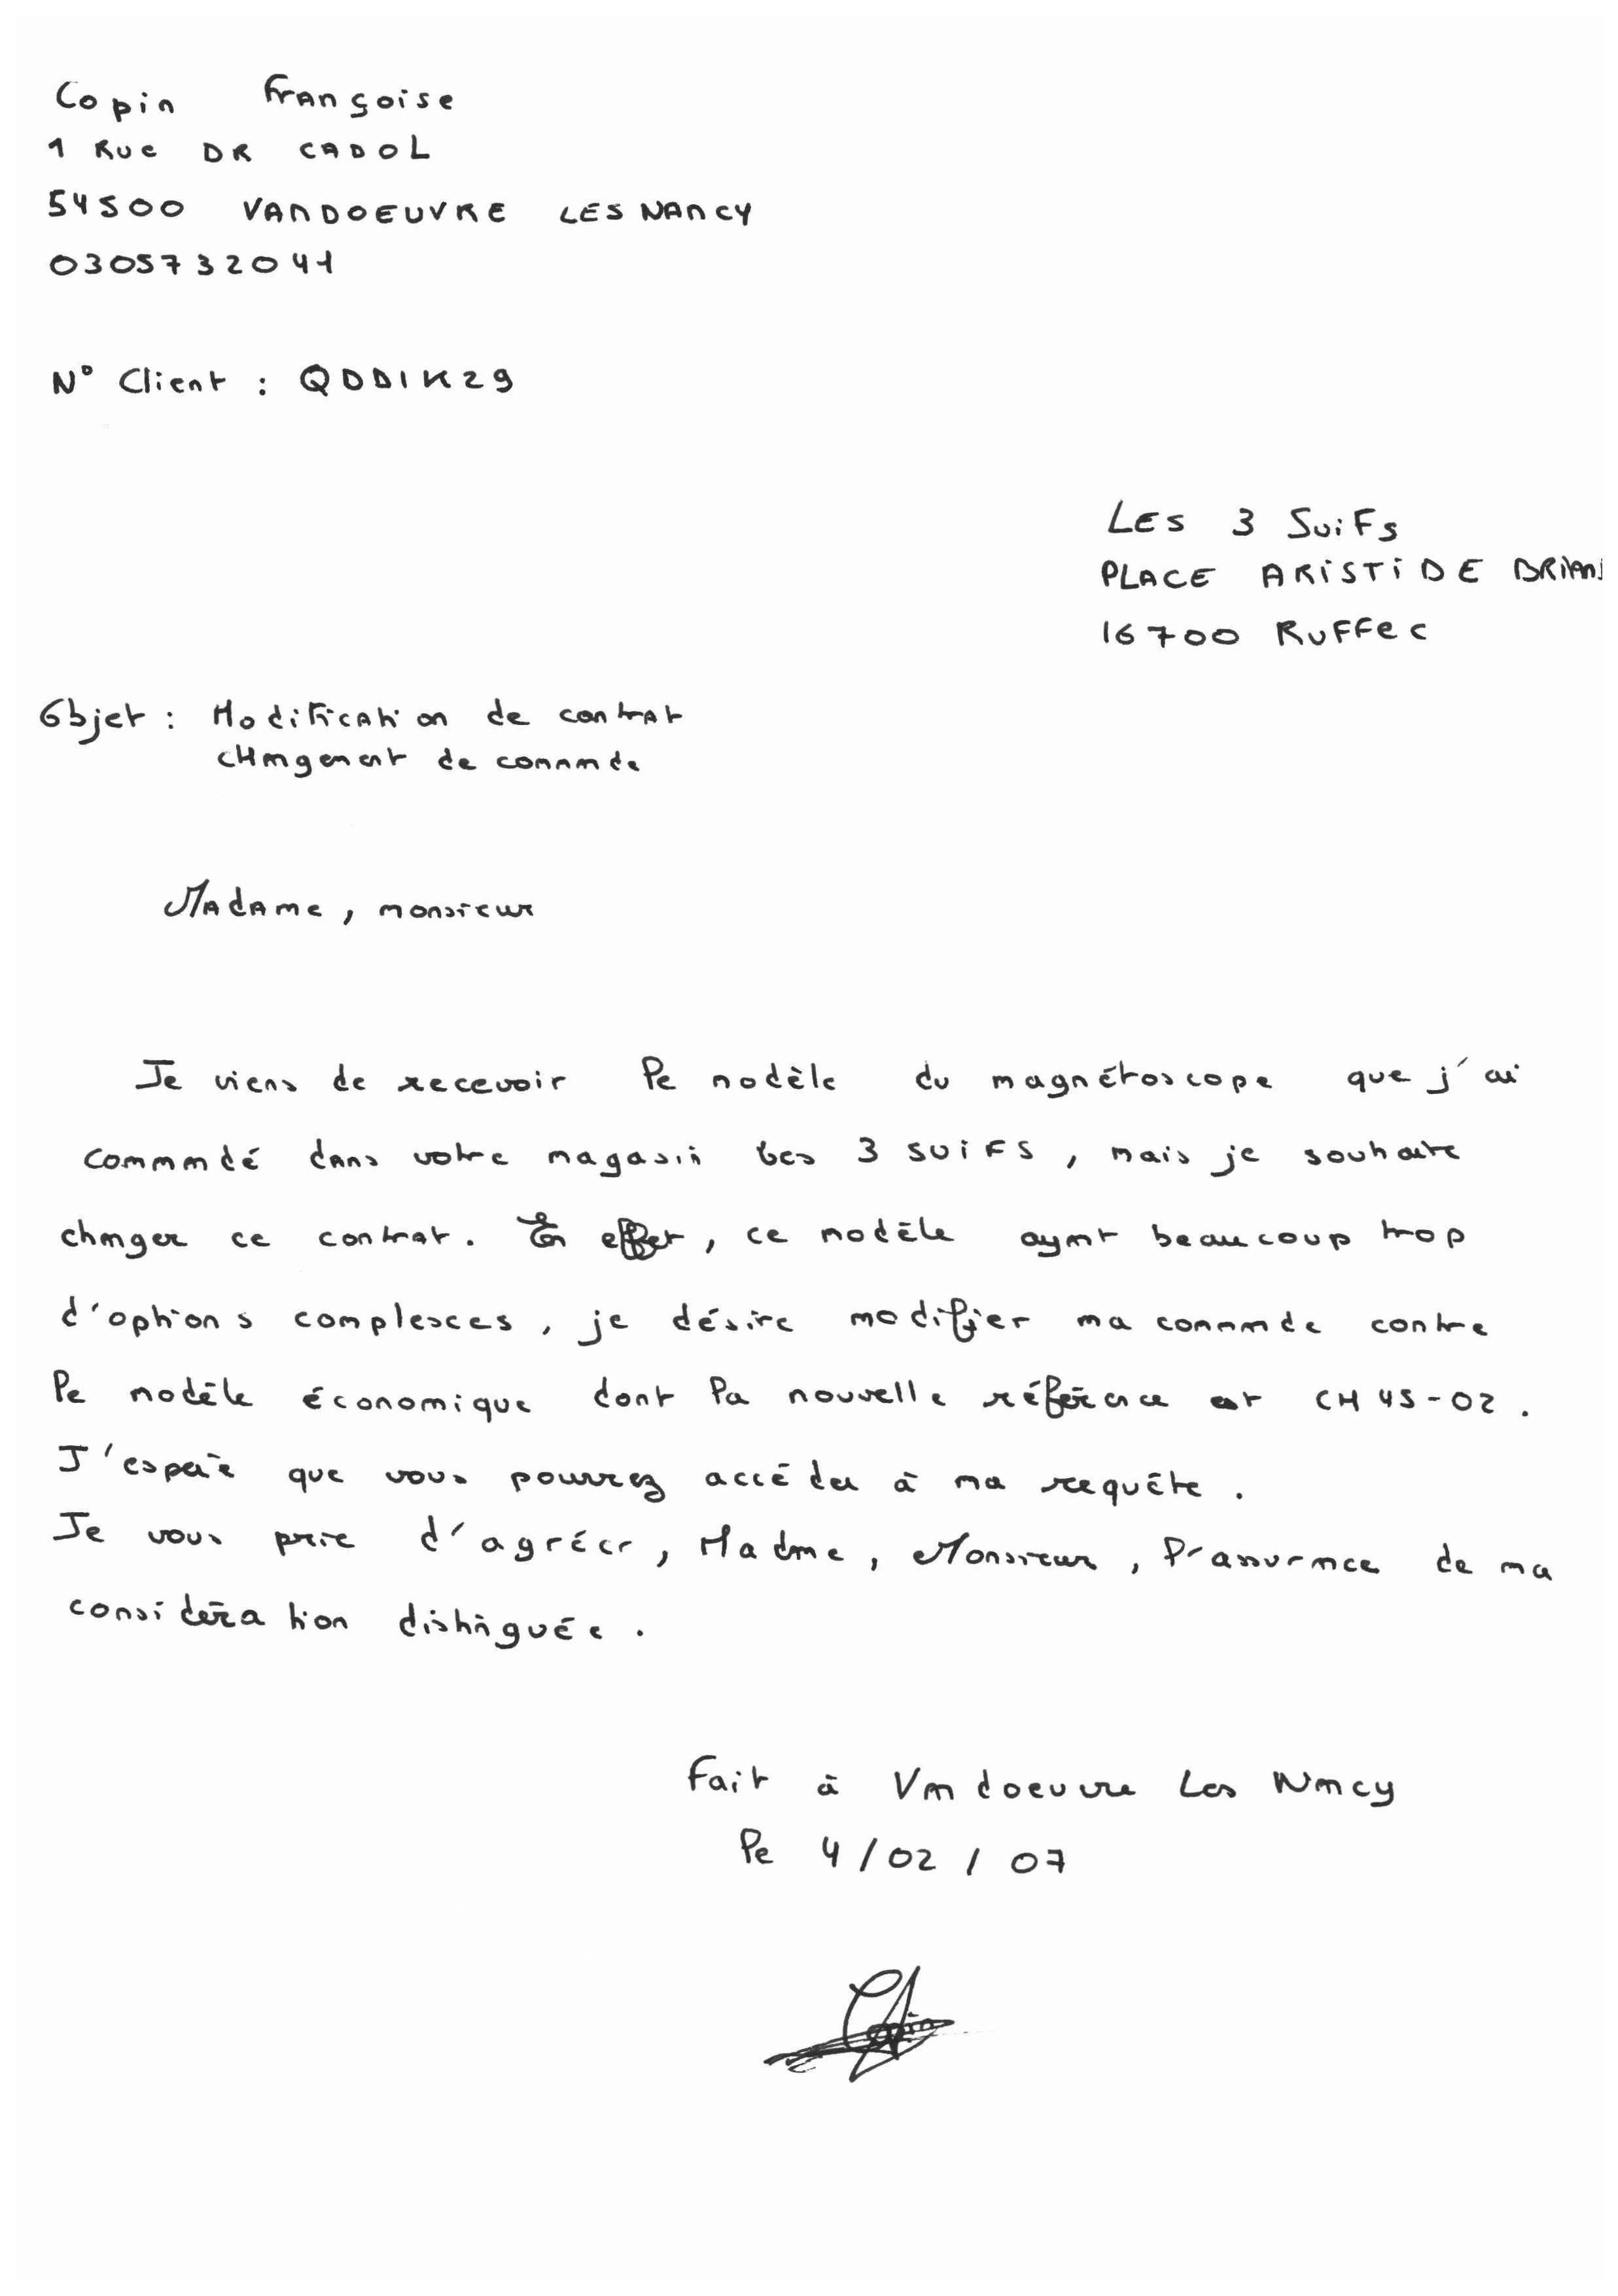 Copin Françoise
1 Rue DR CADOL
54500 VANDOEUVRE LES NANCY
0305732041
N° Client : QDDIK29
LES 3 SuiFs
PLACE ARISTIDE BRIAND
16700 RuFFec
Objet : Modification de contrat
changement de commande
Madame, monsieur
Je viens de recevoir le modèle du magnétoscope que j'ai
commandé dans votre magasin Les 3 SUIFS, mais je souhaite
changer ce contrat. En effet, ce modèle ayant beaucoup trop
d'options complexes, je désire modifier ma commande contre
le modèle économique dont la nouvelle référence est CH45-02.
J'espère que vous pourrez accéder à ma requête.
Je vous prie d'agréer, Madame, Monsieur, l'assurance de ma
considération distinguée.
Fait à Vandoeuvre Les Nancy
le 4/02/07
Copin